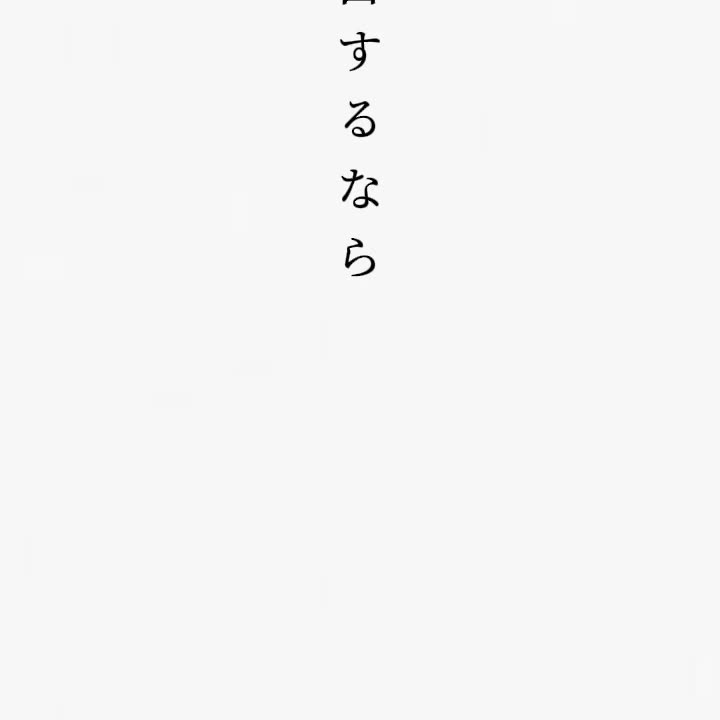 するなら